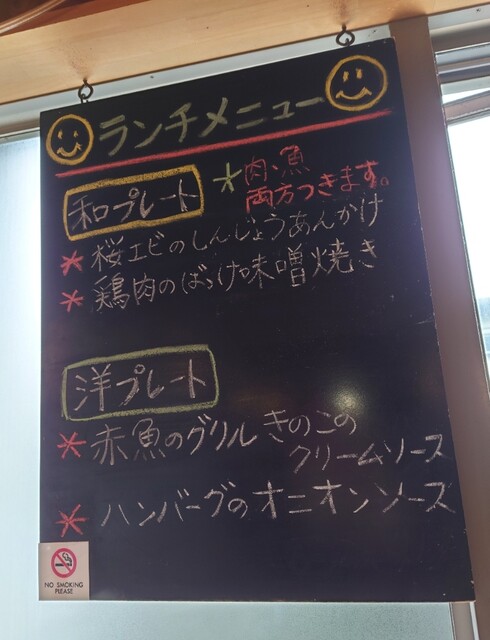 ランチメニュー
和プレート
*肉、魚
両方つきます。
*桜エビのしんじょうあんかけ
*鶏肉のばっけ味噌焼き
洋プレート
*赤魚のグリル きのこの
クリームソース
*ハンバーグのオニオンソース
NO SMOKING
PLEASE